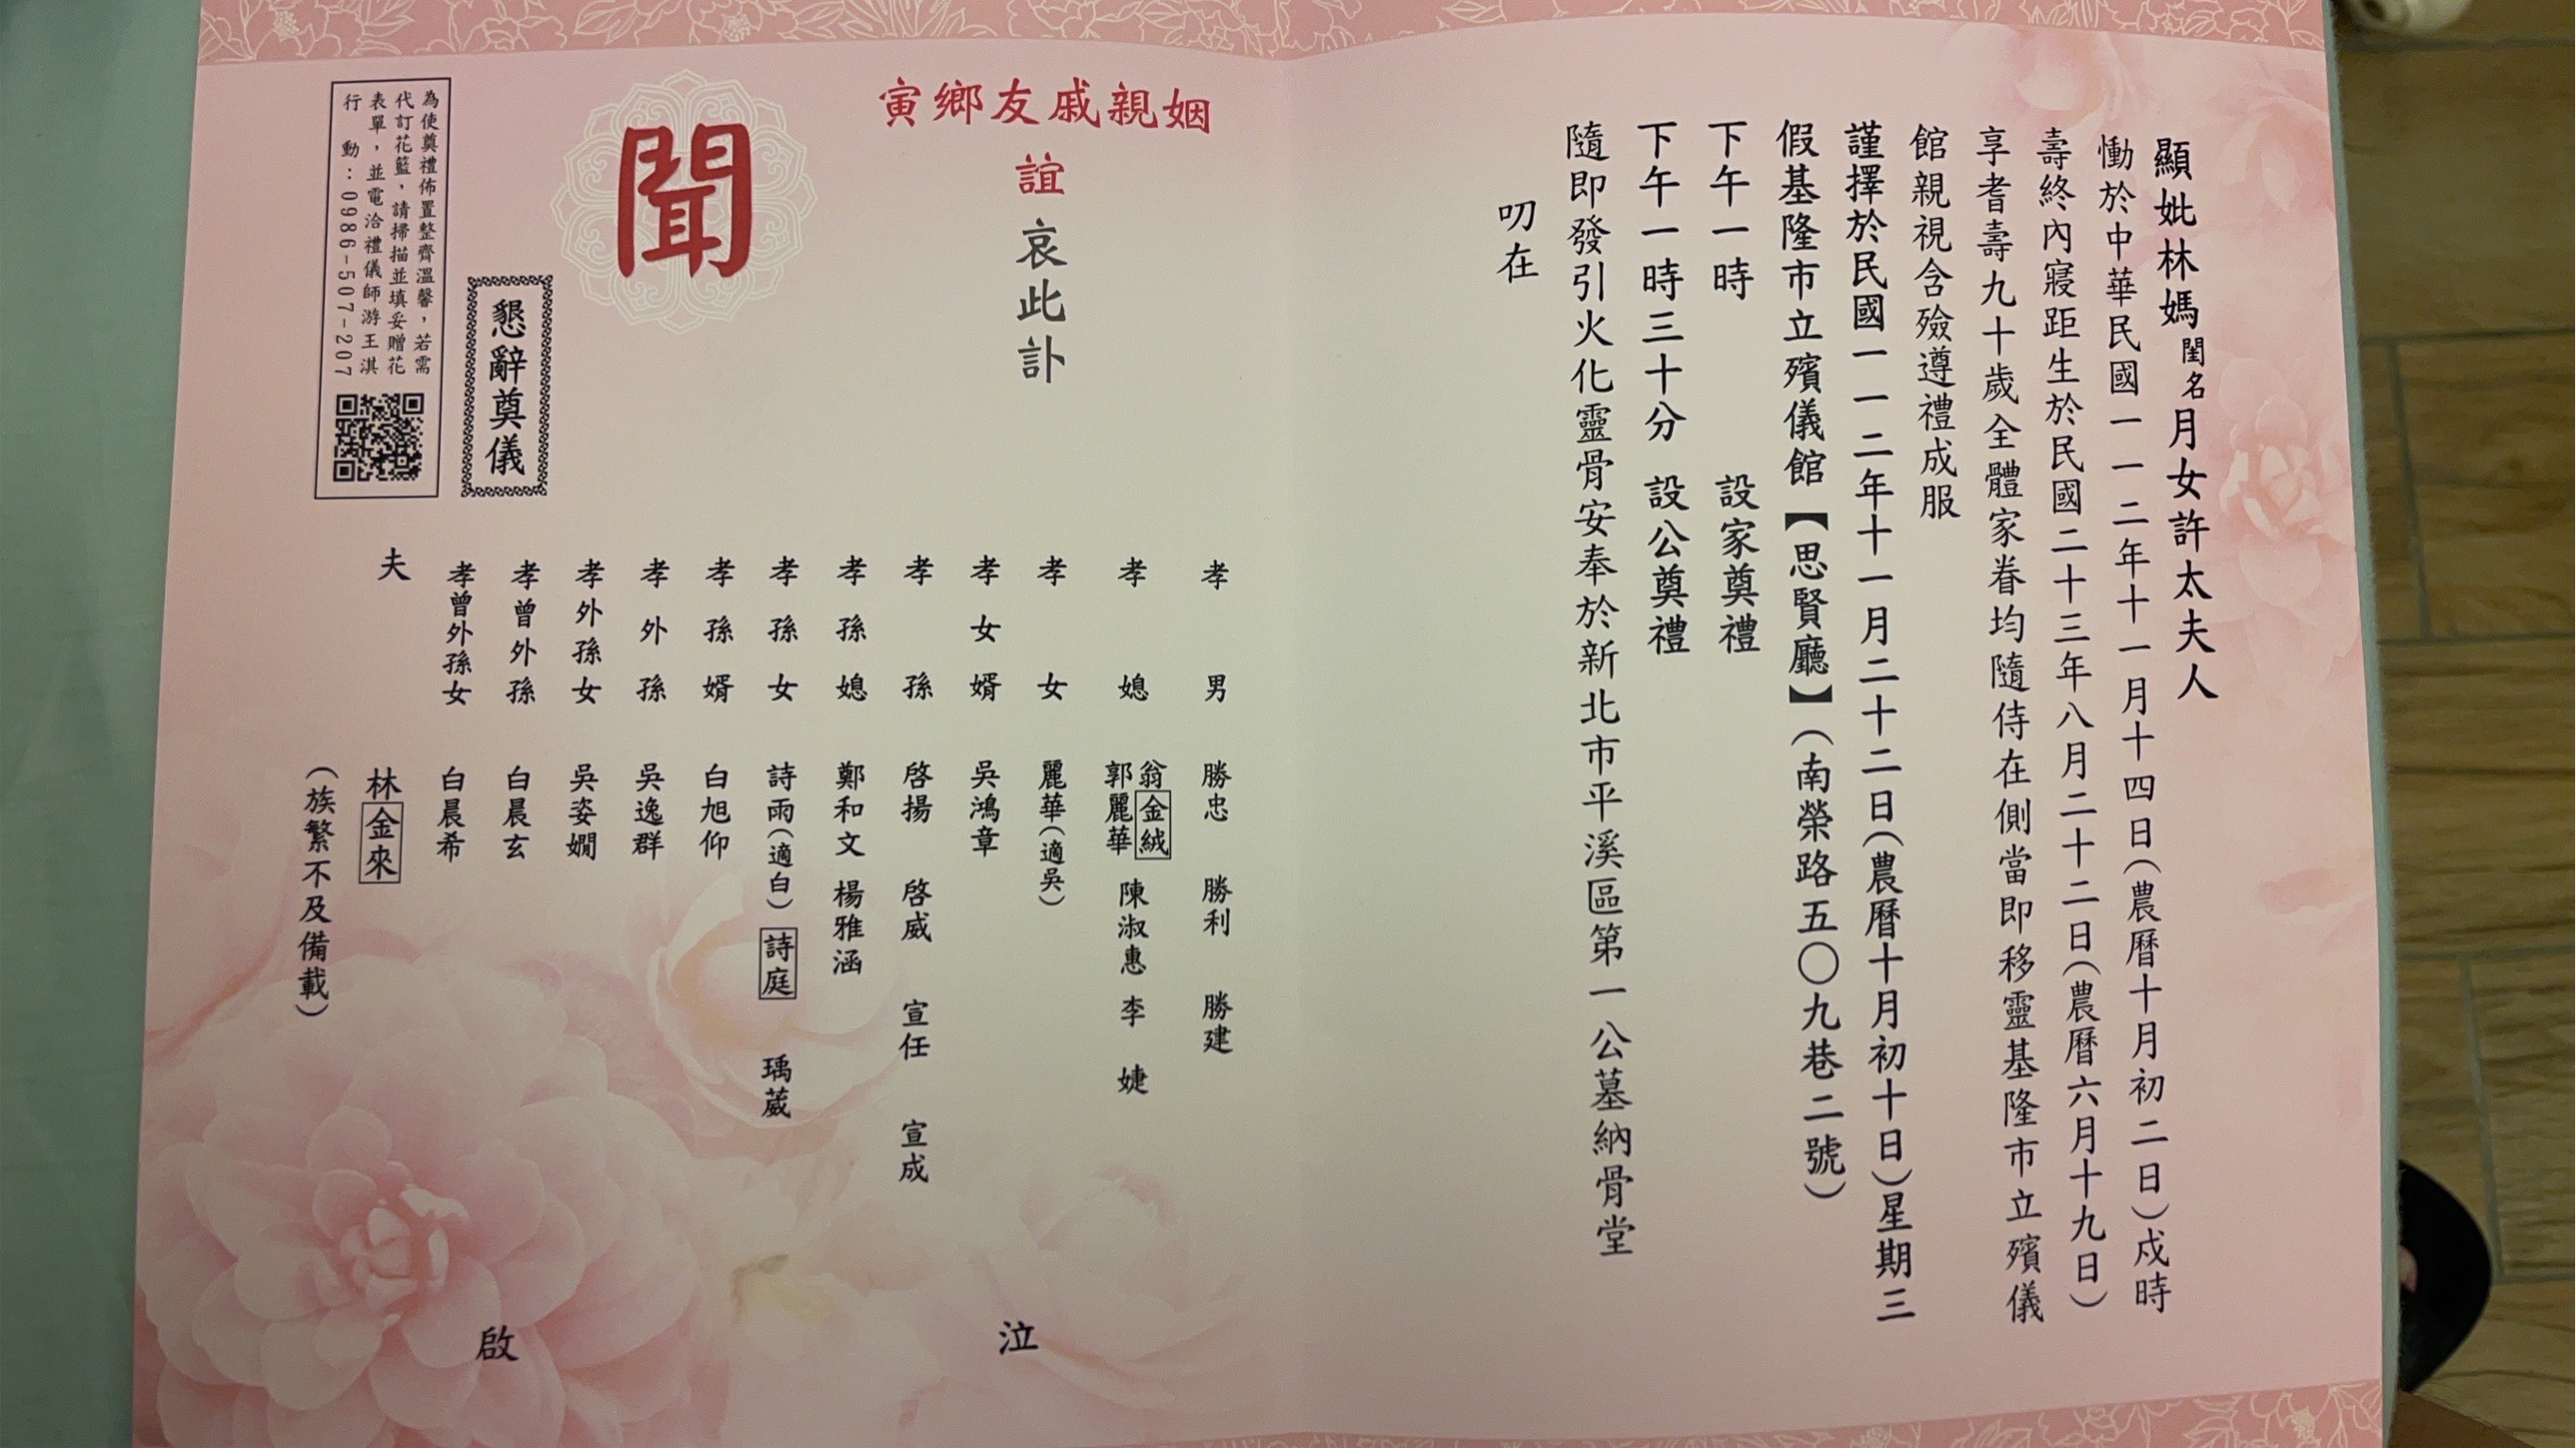 顯妣林媽閨名月女許太夫人
慟於中華民國一一二年十一月十四日(農曆十月初二日)戌時
壽終內寢距生於民國二十三年八月二十二日(農曆六月十九日)
享耆壽九十歲全體家眷均隨侍在側當即移靈基隆市立殯儀
館親視含殮遵禮成服
謹擇於民國一一二年十一月二十二日(農曆十月初十日)星期三
假基隆市立殯儀館【思賢廳】(南榮路五〇九巷二號)
下午一時 設家奠禮
下午一時三十分 設公奠禮
隨即發引火化靈骨安奉於新北市平溪區第一公墓納骨堂
叨在
姻親戚友鄉寅
誼哀此訃
聞
孝男 勝忠 勝利 勝建
孝媳 翁金絨 郭麗華 陳淑惠 李婕
孝女 麗華(適吳)
孝女婿 吳鴻章
孝孫 啓揚 啓威 宣任 宣成
孝孫媳 鄭和文 楊雅涵
孝孫女 詩雨(適白) 詩庭 瑀葳
孝孫婿 白旭仰
孝外孫 吳逸群
孝外孫女 吳姿嫺
孝曾外孫 白晨玄
孝曾外孫女 白晨希
夫 林金來
(族繁不及備載)
泣
啟
懇辭奠儀
為使奠禮佈置整齊溫馨，若需
代訂花籃，請掃描並填妥贈花
表單，並電洽禮儀師游王淇
行動：0986-507-207